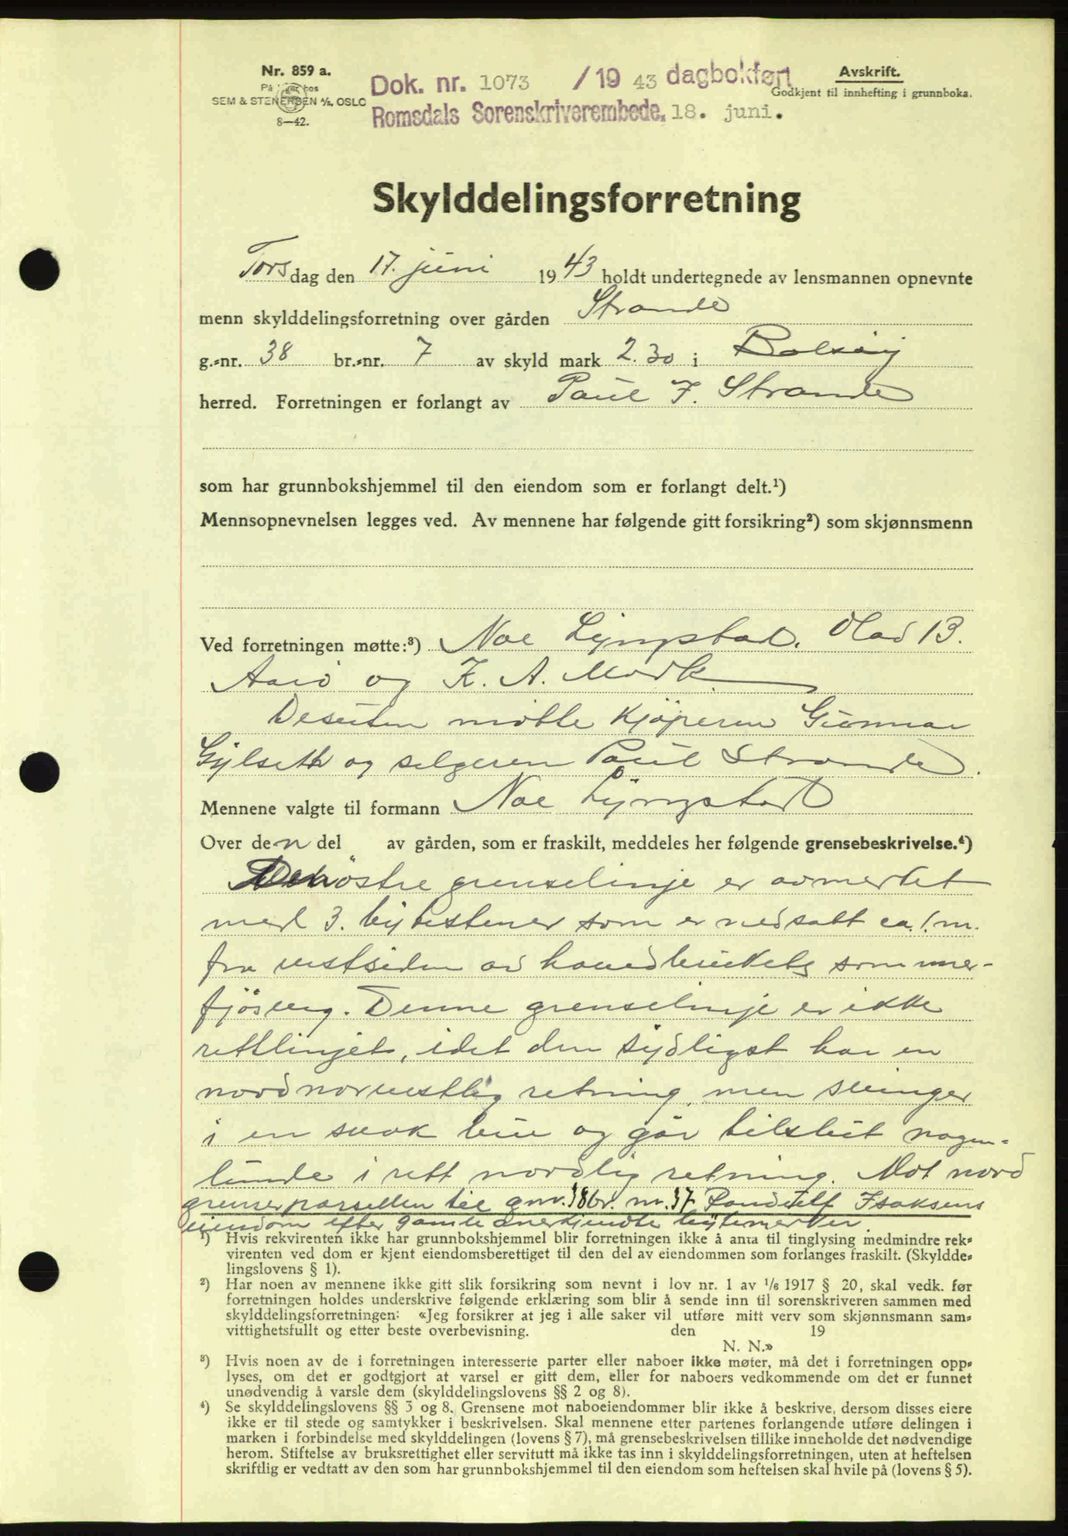 Nr. 859 a.
På lager hos
SEM & STENERSEN A/S, OSLO
8—42.
Dok. nr. 1073 /19 43 dagbokført
Romsdals Sorenskriverembede. 18. juni.
Avskrift.
Godkjent til innhefting i grunnboka.
Skylddelingsforretning
Torsdag den 17. juni 1943 holdt undertegnede av lensmannen opnevnte
menn skylddelingsforretning over gården Strande
g.-nr. 38 br.-nr. 7 av skyld mark 2.30 i Bolsøy
herred. Forretningen er forlangt av Paul F. Strande
som har grunnbokshjemmel til den eiendom som er forlangt delt.¹)
Mennsopnevnelsen legges ved. Av mennene har følgende gitt forsikring²) som skjønnsmenn
Ved forretningen møtte:³) Noe Lyngstad, Olav B.
Aarö og K. A. Mork
Desuten mötte kjöperen Gunnar
Gjlseth og selgeren Paul Strande.
Mennene valgte til formann Noe Lyngstad
Over den del av gården, som er fraskilt, meddeles her følgende grensebeskrivelse.⁴)
Den östre grenselinje er avmerket
med 3. bytestener som er nedsatt ca. 1. m.
fra vestsiden av hovedbrukets sommer-
fjösveg. Denne grenselinje er ikke
rettlinjet, idet den sydligst har en
nordnorvestlig retning, men svinger
i en svak bue og går tilslutt nogen-
lunde i rett nordlig retning. Mot nord
grenser parsellen til gnr. 38 br. nr. 37 Randulf Isaksens
eiendom efter gamle anerkjendte bytemerker.
¹) Hvis rekvirenten ikke har grunnbokshjemmel blir forretningen ikke å anta til tinglysing medmindre rek-
virenten ved dom er kjent eiendomsberettiget til den del av eiendommen som forlanges fraskilt. (Skyldde-
lingslovens § 1).
²) Har noen av mennene ikke gitt slik forsikring som nevnt i lov nr. 1 av ¹/₆ 1917 § 20, skal vedk. før
forretningen holdes underskrive følgende erklæring som blir å sende inn til sorenskriveren sammen med
skylddelingsforretningen: «Jeg forsikrer at jeg i alle saker vil utføre mitt verv som skjønnsmann sam-
vittighetsfullt og etter beste overbevisning. den 19
N. N.»
³) Hvis noen av de i forretningen interesserte parter eller naboer ikke møter, må det i forretningen opp-
lyses, om det er godtgjort at varsel er gitt dem, eller for naboers vedkommende om det er funnet
unødvendig å varsle dem (skylddelingslovens §§ 2 og 8).
⁴) Se skylddelingslovens §§ 3 og 8. Grensene mot naboeiendommer blir ikke å beskrive, dersom disses eiere
ikke er til stede og samtykker i beskrivelsen. Skal mennene etter partenes forlangende utføre delingen i
marken i forbindelse med skylddelingen (lovens § 7), må grensebeskrivelsen tillike inneholde det nødvendige
herom. Stiftelse av bruksrettighet eller servitutt må ikke tas inn i skylddelingsforretningen, uten at heftelsen
skriftlig er vedtatt av den som har grunnbokshjemmel til den eiendom som heftelsen skal hvile på (lovens § 5).